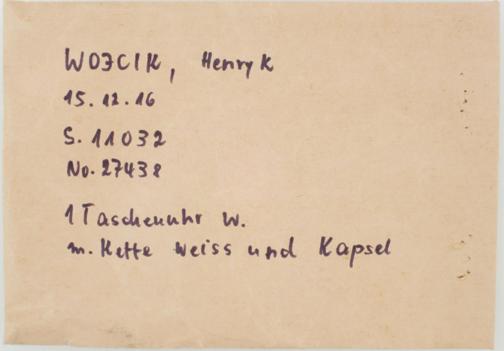 WOJCIK, Henryk
15.12.16
S. 11032
No. 27438
1 Taschenuhr W.
m. Kette weiss und Kapsel